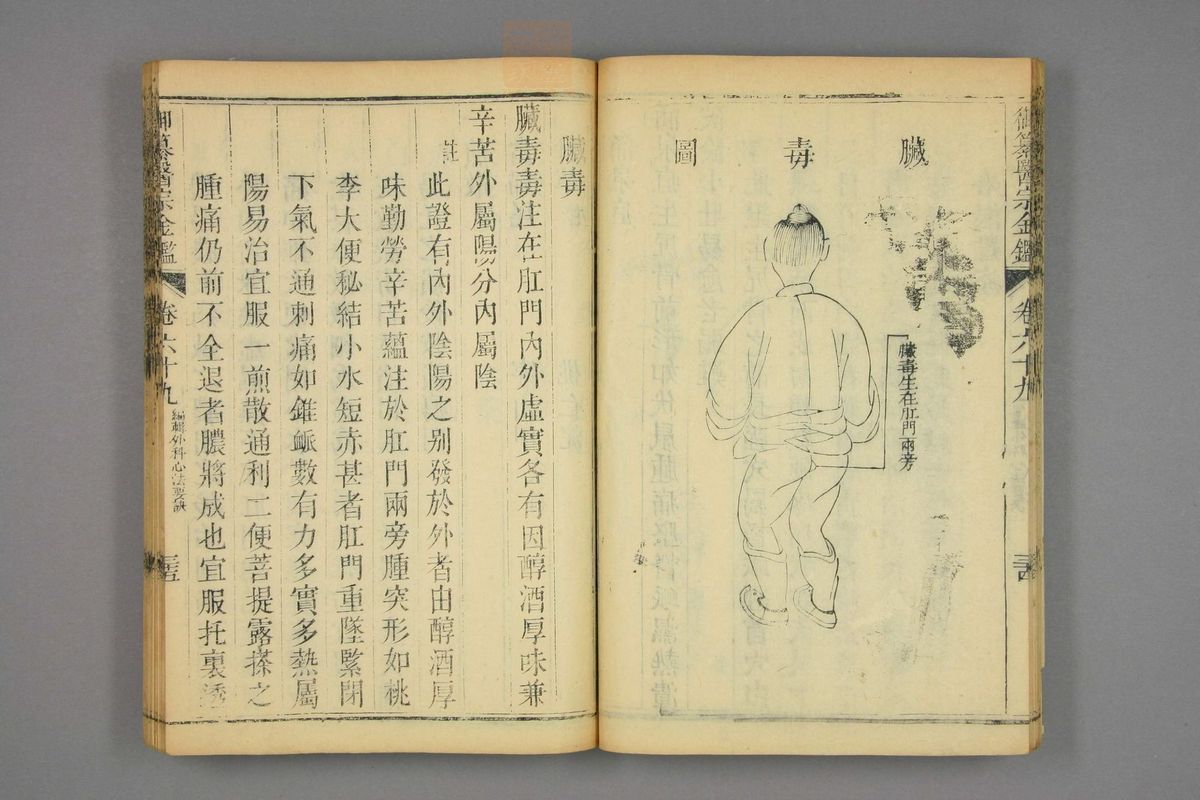 御纂醫宗金鑑
卷六十九
臟毒圖
臟毒生在肛門兩旁
臟毒
臟毒毒注在肛門內外虛實各有因醇酒厚味兼
辛苦外屬陽分內屬陰
註
此證有內外陰陽之別發於外者由醇酒厚
味勤勞辛苦蘊注於肛門兩旁腫突形如桃
李大便秘結小水短赤甚者肛門重墜緊閉
下氣不通刺痛如錐脈數有力多實多熱屬
陽易治宜服一煎散通利二便菩提露搽之
腫痛仍前不全退者膿將成也宜服托裏透
御纂醫宗金鑑
卷六十九
編輯外科心法要訣